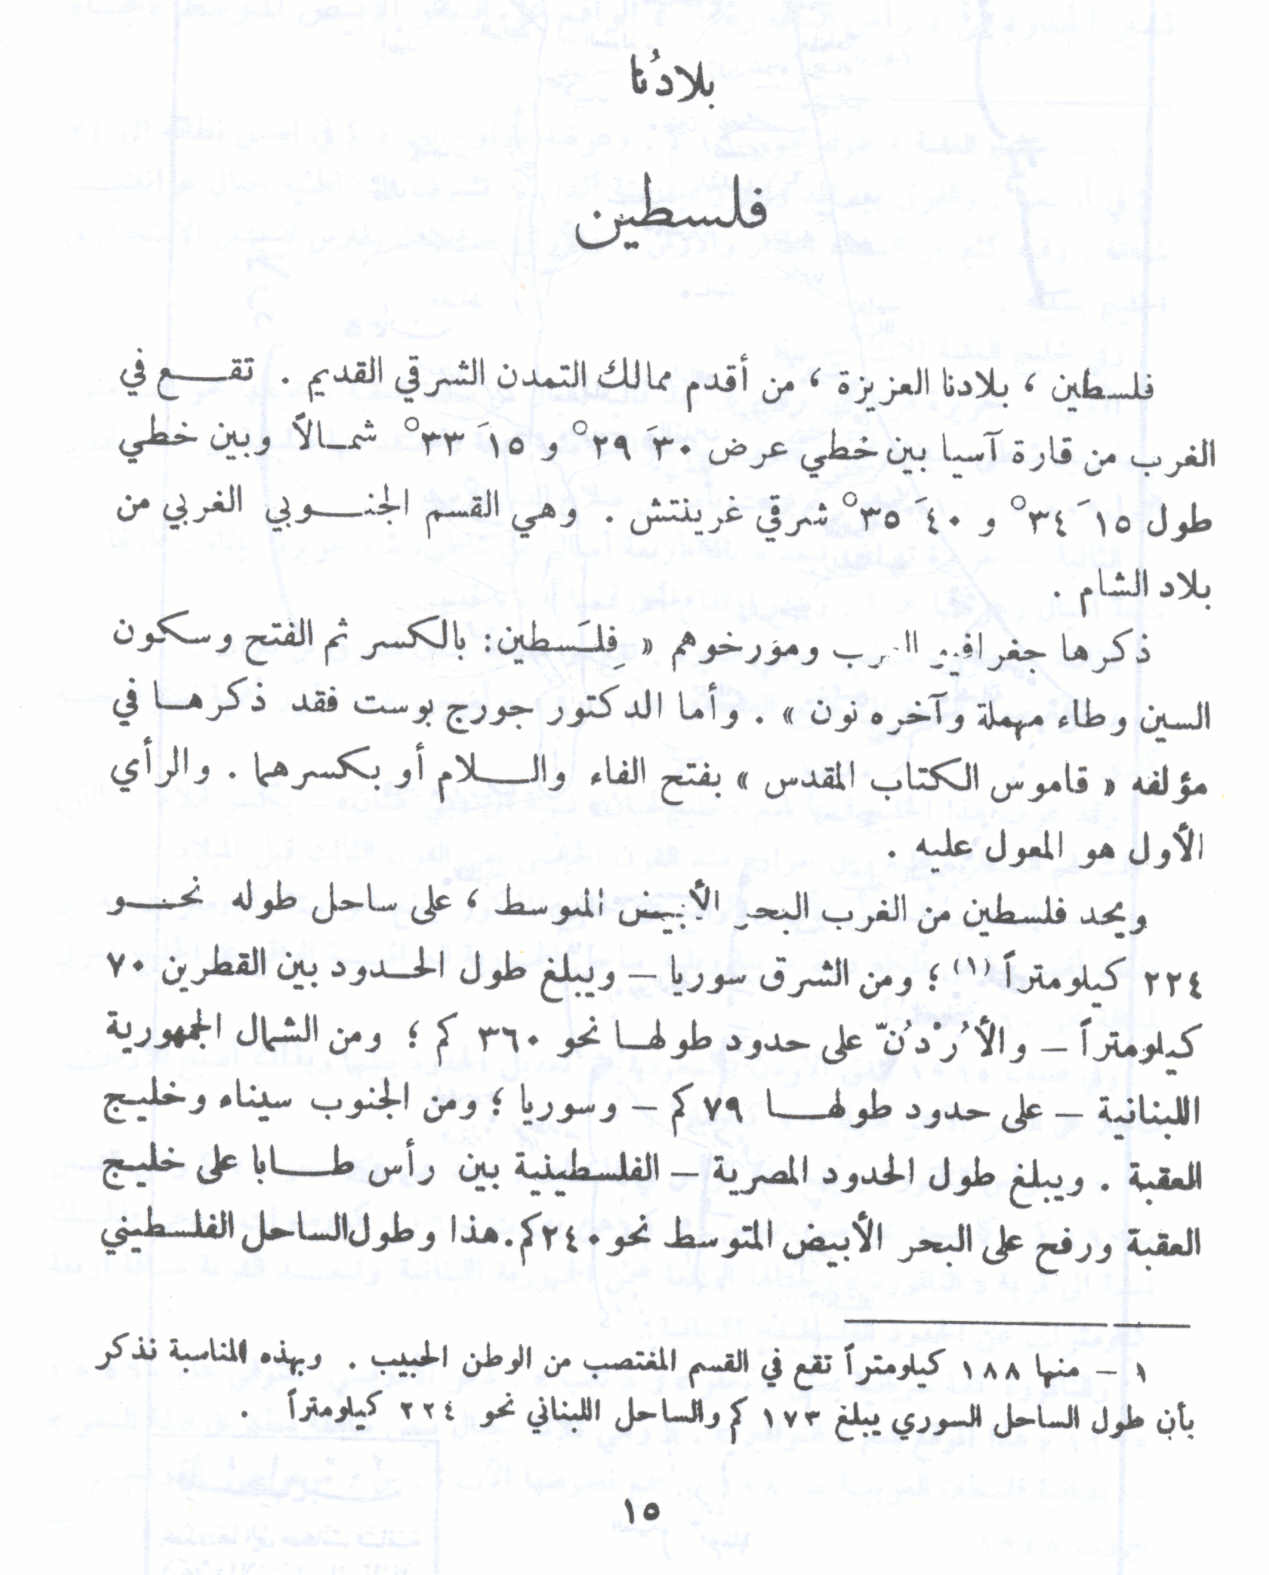 بلادُنا
فلسطين
فلسطين ، بلادنا العزيزة ، من أقدم ممالك التمدن الشرقي القديم . تقــع في
الغرب من قارة آسيا بين خطي عرض ٣٠َ ٢٩° و ١٥َ ٣٣° شمــالاً وبين خطي
طول ١٥َ ٣٤° و ٤٠َ ٣٥° شرقي غرينتش . وهي القسم الجنــوبي الغربي من
بلاد الشام .
ذكرها جغرافيو العرب ومؤرخوهم « فِلَسطين: بالكسر ثم الفتح وسكون
السين وطاء مهملة وآخره نون » . وأما الدكتور جورج بوست فقد ذكرهــا في
مؤلفه « قاموس الكتاب المقدس » بفتح الفاء والــلام أو بكسرهما . والرأي
الأول هو المعول عليه .
ويحد فلسطين من الغرب البحر الأبيض المتوسط ، على ساحل طوله نحــو
٢٢٤ كيلومتراً (١) ؛ ومن الشرق سوريا – ويبلغ طول الحــدود بين القطرين ٧٠
كيلومتراً – والأُرْدُنّ على حدود طولهــا نحو ٣٦٠ كم ؛ ومن الشمال الجمهورية
اللبنانية – على حدود طولهــا ٧٩ كم – وسوريا ؛ ومن الجنوب سيناء وخليج
العقبة . ويبلغ طول الحدود المصرية – الفلسطينية بين رأس طــابا على خليج
العقبة ورفح على البحر الأبيض المتوسط نحو ٢٤٠ كم. هذا وطول الساحل الفلسطيني
١ – منها ١٨٨ كيلومتراً تقع في القسم المغتصب من الوطن الحبيب . وبهذه المناسبة نذكر
بأن طول الساحل السوري يبلغ ١٧٣ كم والساحل اللبناني نحو ٢٢٤ كيلومتراً .
١٥